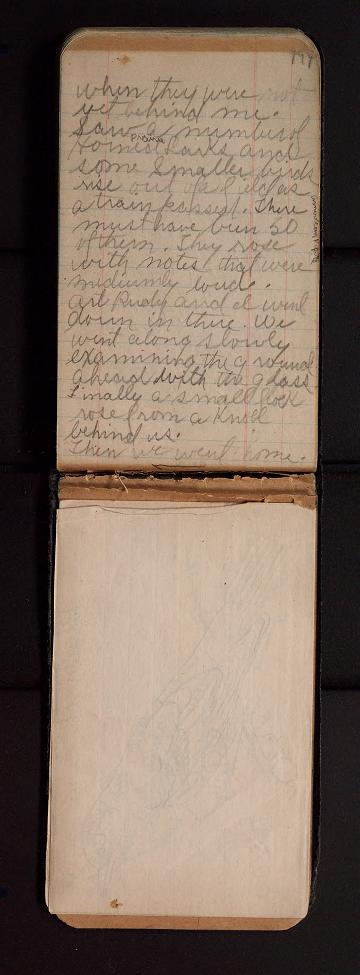 177
when they were not
yet behind me.
Saw a number of
Prairie
Horned Larks and
some smaller birds
rise out of a field as
a train passed. There
must have been 50
of them. They rose
with notes that were
mediumly loud.
Art Rudy and I went
down in there. We
went along slowly
examining the ground
ahead with the glass
Finally a small flock
rose from a knoll
behind us.
Then we went home.